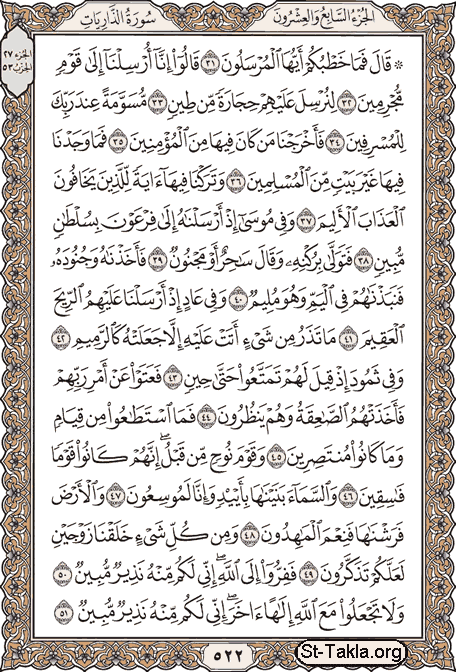 الجزء السابع والعشرون
سورة الذاريات
الجزء ٢٧
الحزب ٥٣
۞ قَالَ فَمَا خَطْبُكُمْ أَيُّهَا ٱلْمُرْسَلُونَ ٣١ قَالُوٓا۟ إِنَّآ أُرْسِلْنَآ إِلَىٰ قَوْمٍ
مُّجْرِمِينَ ٣٢ لِنُرْسِلَ عَلَيْهِمْ حِجَارَةً مِّن طِينٍ ٣٣ مُّسَوَّمَةً عِندَ رَبِّكَ
لِلْمُسْرِفِينَ ٣٤ فَأَخْرَجْنَا مَن كَانَ فِيهَا مِنَ ٱلْمُؤْمِنِينَ ٣٥ فَمَا وَجَدْنَا
فِيهَا غَيْرَ بَيْتٍ مِّنَ ٱلْمُسْلِمِينَ ٣٦ وَتَرَكْنَا فِيهَآ ءَايَةً لِّلَّذِينَ يَخَافُونَ
ٱلْعَذَابَ ٱلْأَلِيمَ ٣٧ وَفِى مُوسَىٰٓ إِذْ أَرْسَلْنَٰهُ إِلَىٰ فِرْعَوْنَ بِسُلْطَٰنٍ
مُّبِينٍ ٣٨ فَتَوَلَّىٰ بِرُكْنِهِۦ وَقَالَ سَٰحِرٌ أَوْ مَجْنُونٌ ٣٩ فَأَخَذْنَٰهُ وَجُنُودَهُۥ
فَنَبَذْنَٰهُمْ فِى ٱلْيَمِّ وَهُوَ مُلِيمٌ ٤٠ وَفِى عَادٍ إِذْ أَرْسَلْنَا عَلَيْهِمُ ٱلرِّيحَ
ٱلْعَقِيمَ ٤١ مَا تَذَرُ مِن شَىْءٍ أَتَتْ عَلَيْهِ إِلَّا جَعَلَتْهُ كَٱلرَّمِيمِ ٤٢
وَفِى ثَمُودَ إِذْ قِيلَ لَهُمْ تَمَتَّعُوا۟ حَتَّىٰ حِينٍ ٤٣ فَعَتَوْا۟ عَنْ أَمْرِ رَبِّهِمْ
فَأَخَذَتْهُمُ ٱلصَّٰعِقَةُ وَهُمْ يَنظُرُونَ ٤٤ فَمَا ٱسْتَطَٰعُوا۟ مِن قِيَامٍ
وَمَا كَانُوا۟ مُنتَصِرِينَ ٤٥ وَقَوْمَ نُوحٍ مِّن قَبْلُ ۖ إِنَّهُمْ كَانُوا۟ قَوْمًا
فَٰسِقِينَ ٤٦ وَٱلسَّمَآءَ بَنَيْنَٰهَا بِأَيْي۟دٍ وَإِنَّا لَمُوسِعُونَ ٤٧ وَٱلْأَرْضَ
فَرَشْنَٰهَا فَنِعْمَ ٱلْمَٰهِدُونَ ٤٨ وَمِن كُلِّ شَىْءٍ خَلَقْنَا زَوْجَيْنِ
لَعَلَّكُمْ تَذَكَّرُونَ ٤٩ فَفِرُّوٓا۟ إِلَى ٱللَّهِ ۖ إِنِّى لَكُم مِّنْهُ نَذِيرٌ مُّبِينٌ ٥٠
وَلَا تَجْعَلُوا۟ مَعَ ٱللَّهِ إِلَٰهًا ءَاخَرَ ۖ إِنِّى لَكُم مِّنْهُ نَذِيرٌ مُّبِينٌ ٥١
٥٢٢
St-Takla.org